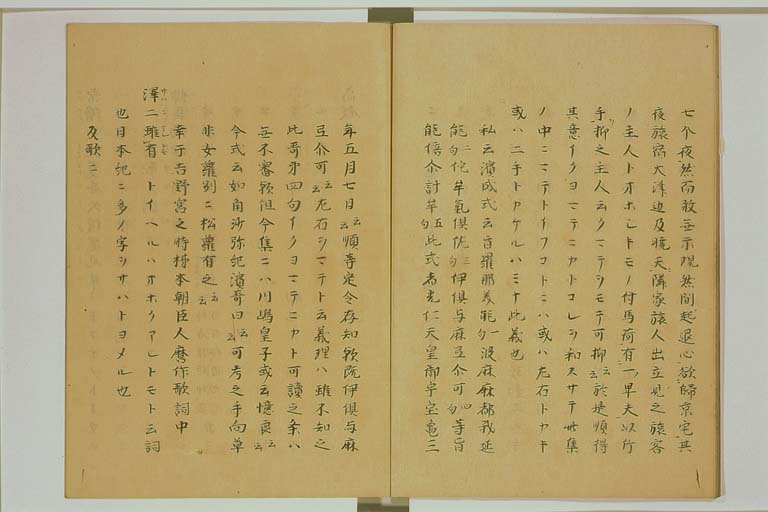 七个夜然而敢无示現然間起退心欲歸京宅其
夜旅宿大津辺及暁天隣家旅人出立見之旅客
ノ主人トオホシトモノ付馬荷有一ノ早夫以行
手抑之主人云クマテヲモテ可抑云々於是順得
其意イクヨマテニカトコレヲ和スサテ此集
ノ中ニマテトイフコトニハ或ハ左右トカキ
或ハ二手トカケルハミナ此義也
私云濱成式云旨羅那美能一句波麻麻都我延
能二句佗牟氣倶佐能三句伊倶与麻豆介可四句等旨
能倍介計牟五句此式者光仁天皇御宇宝亀三
年五月七日云々順等定令存知歟既伊倶与麻
豆介可云々左右ヲマテト云義理ハ雖不知之
此哥第四句イクヨマテニカト可讀之条ハ
無不審歟但今集ニハ川嶋皇子或云憶良云々
令式云如角沙弥紀濱哥曰云々可考之手向草
非女蘿別ニ松蘿有之云々
幸于吉野宮之時柿本朝臣人麿作歌詞中
澤二雖有トイヘルハオホクアレトモト云詞
也日本紀ニ多ノ字ヲサハトヨメル也
及歌ニ